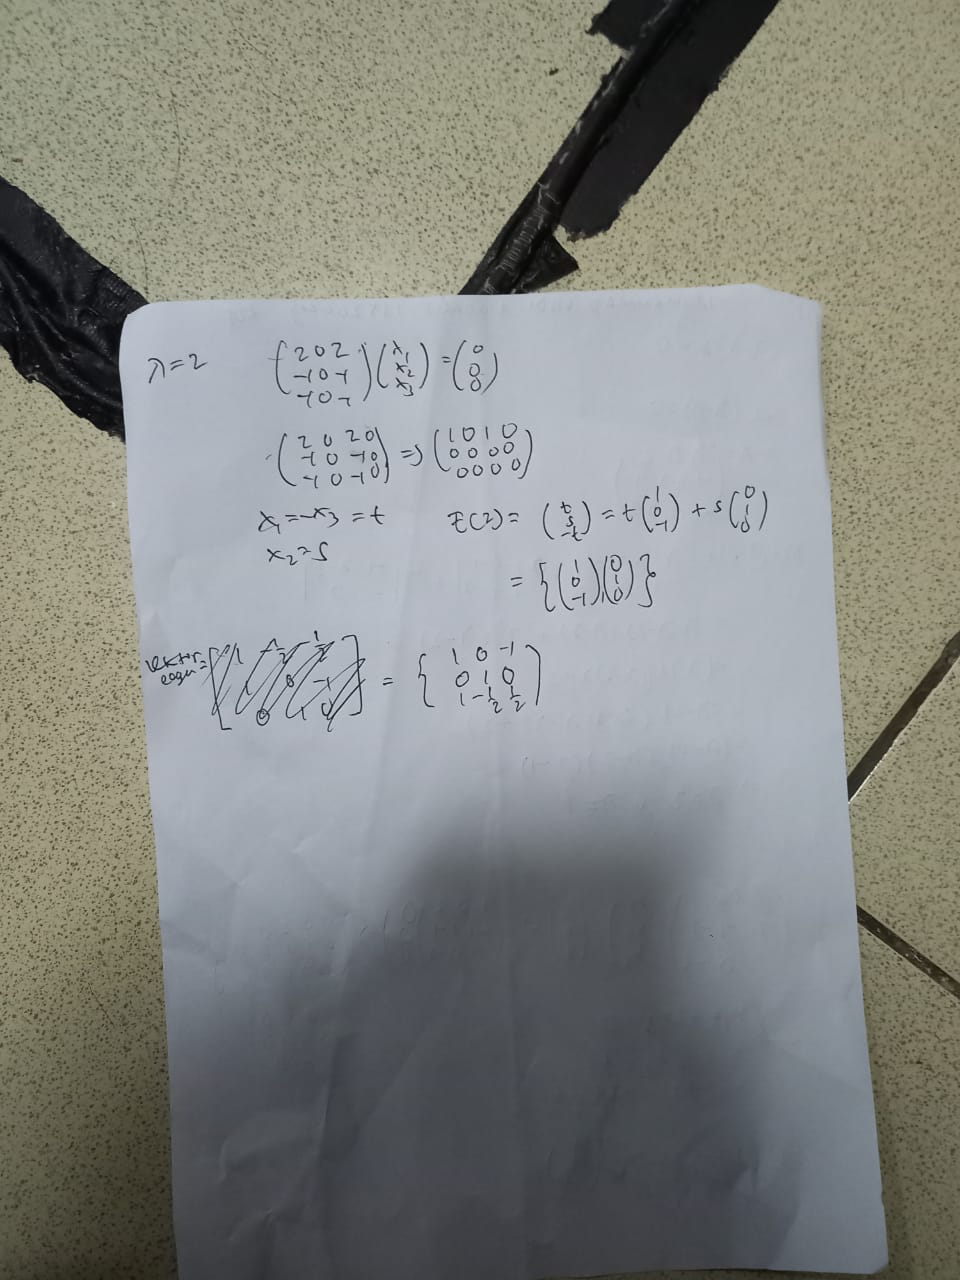 λ=2 (2 0 2 -1 0 -1 -1 0 -1) (x1 x2 x3) = (0 0 0)
(2 0 2 0 -1 0 -1 0 -1 0 -1 0) => (1 0 1 0 0 0 0 0 0 0 0 0)
x1 = -x3 = t E(2) = (t s -t) = t (1 0 -1) + s (0 1 0)
x2 = s
= {(1 0 -1), (0 1 0)}
vektor = = { 1 0 -1 0 1 0 1 -1/2 1/2 )